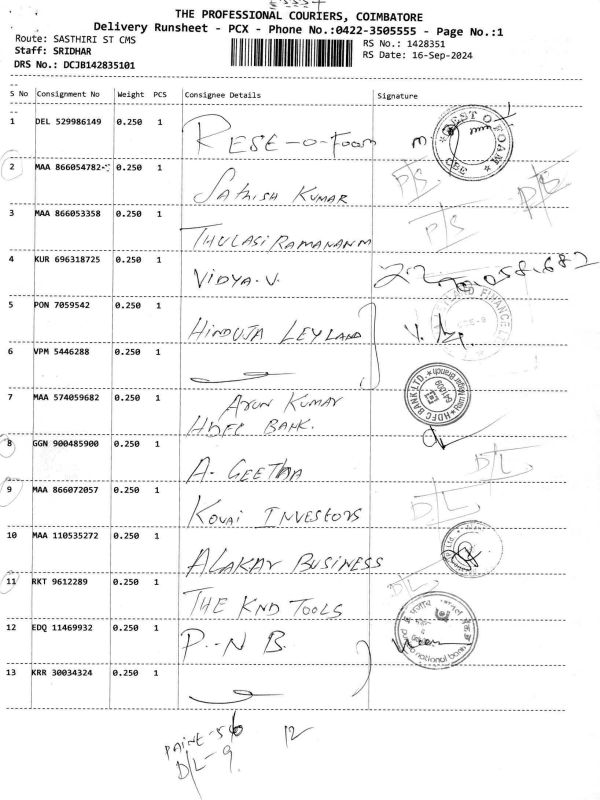 THE PROFESSIONAL COURIERS, COIMBATORE
Delivery Runsheet - PCX - Phone No.:0422-3505555 - Page No.:1
Route: SASTHIRI ST CMS
RS No.: 1428351
Staff: SRIDHAR
RS Date: 16-Sep-2024
DRS No.: DCJB142835101
S No Consignment No Weight PCS Consignee Details Signature
1 DEL 529986149 0.250 1 REST-O-FOAM
REST O FOAM
2 MAA 866054782 0.250 1 SATHISH KUMAR P/S P/S
3 MAA 866053358 0.250 1 THULASIRAMANANM P/S
4 KUR 696318725 0.250 1 VIDYA.V.
5 PON 7059542 0.250 1 HINDUJA LEYLAND
LAND FINANCE
6 VPM 5446288 0.250 1
7 MAA 574059682 0.250 1 ARUN KUMAR
HDFC BANK.
HDFC BANK LTD.
8 GGN 900485900 0.250 1 A. GEETHA D/L
9 MAA 866072057 0.250 1 KOVAI INVESTORS D/L
10 MAA 110535272 0.250 1 ALAKAR BUSINESS
11 RKT 9612289 0.250 1 THE KND TOOLS D/L
12 EDQ 11469932 0.250 1 P.-N B.
national bank
13 KRR 30034324 0.250 1
12
D/L-9